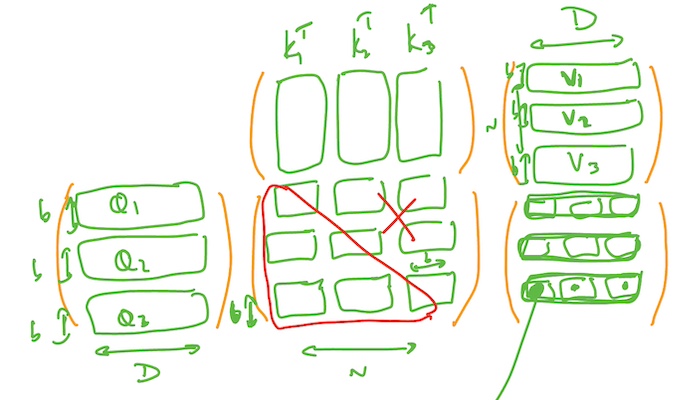 K₁ᵀ K₂ᵀ K₃ᵀ
D
b V₁
b V₂
b V₃
N
b Q₁
b Q₂
b Q₃
D
b
b
N